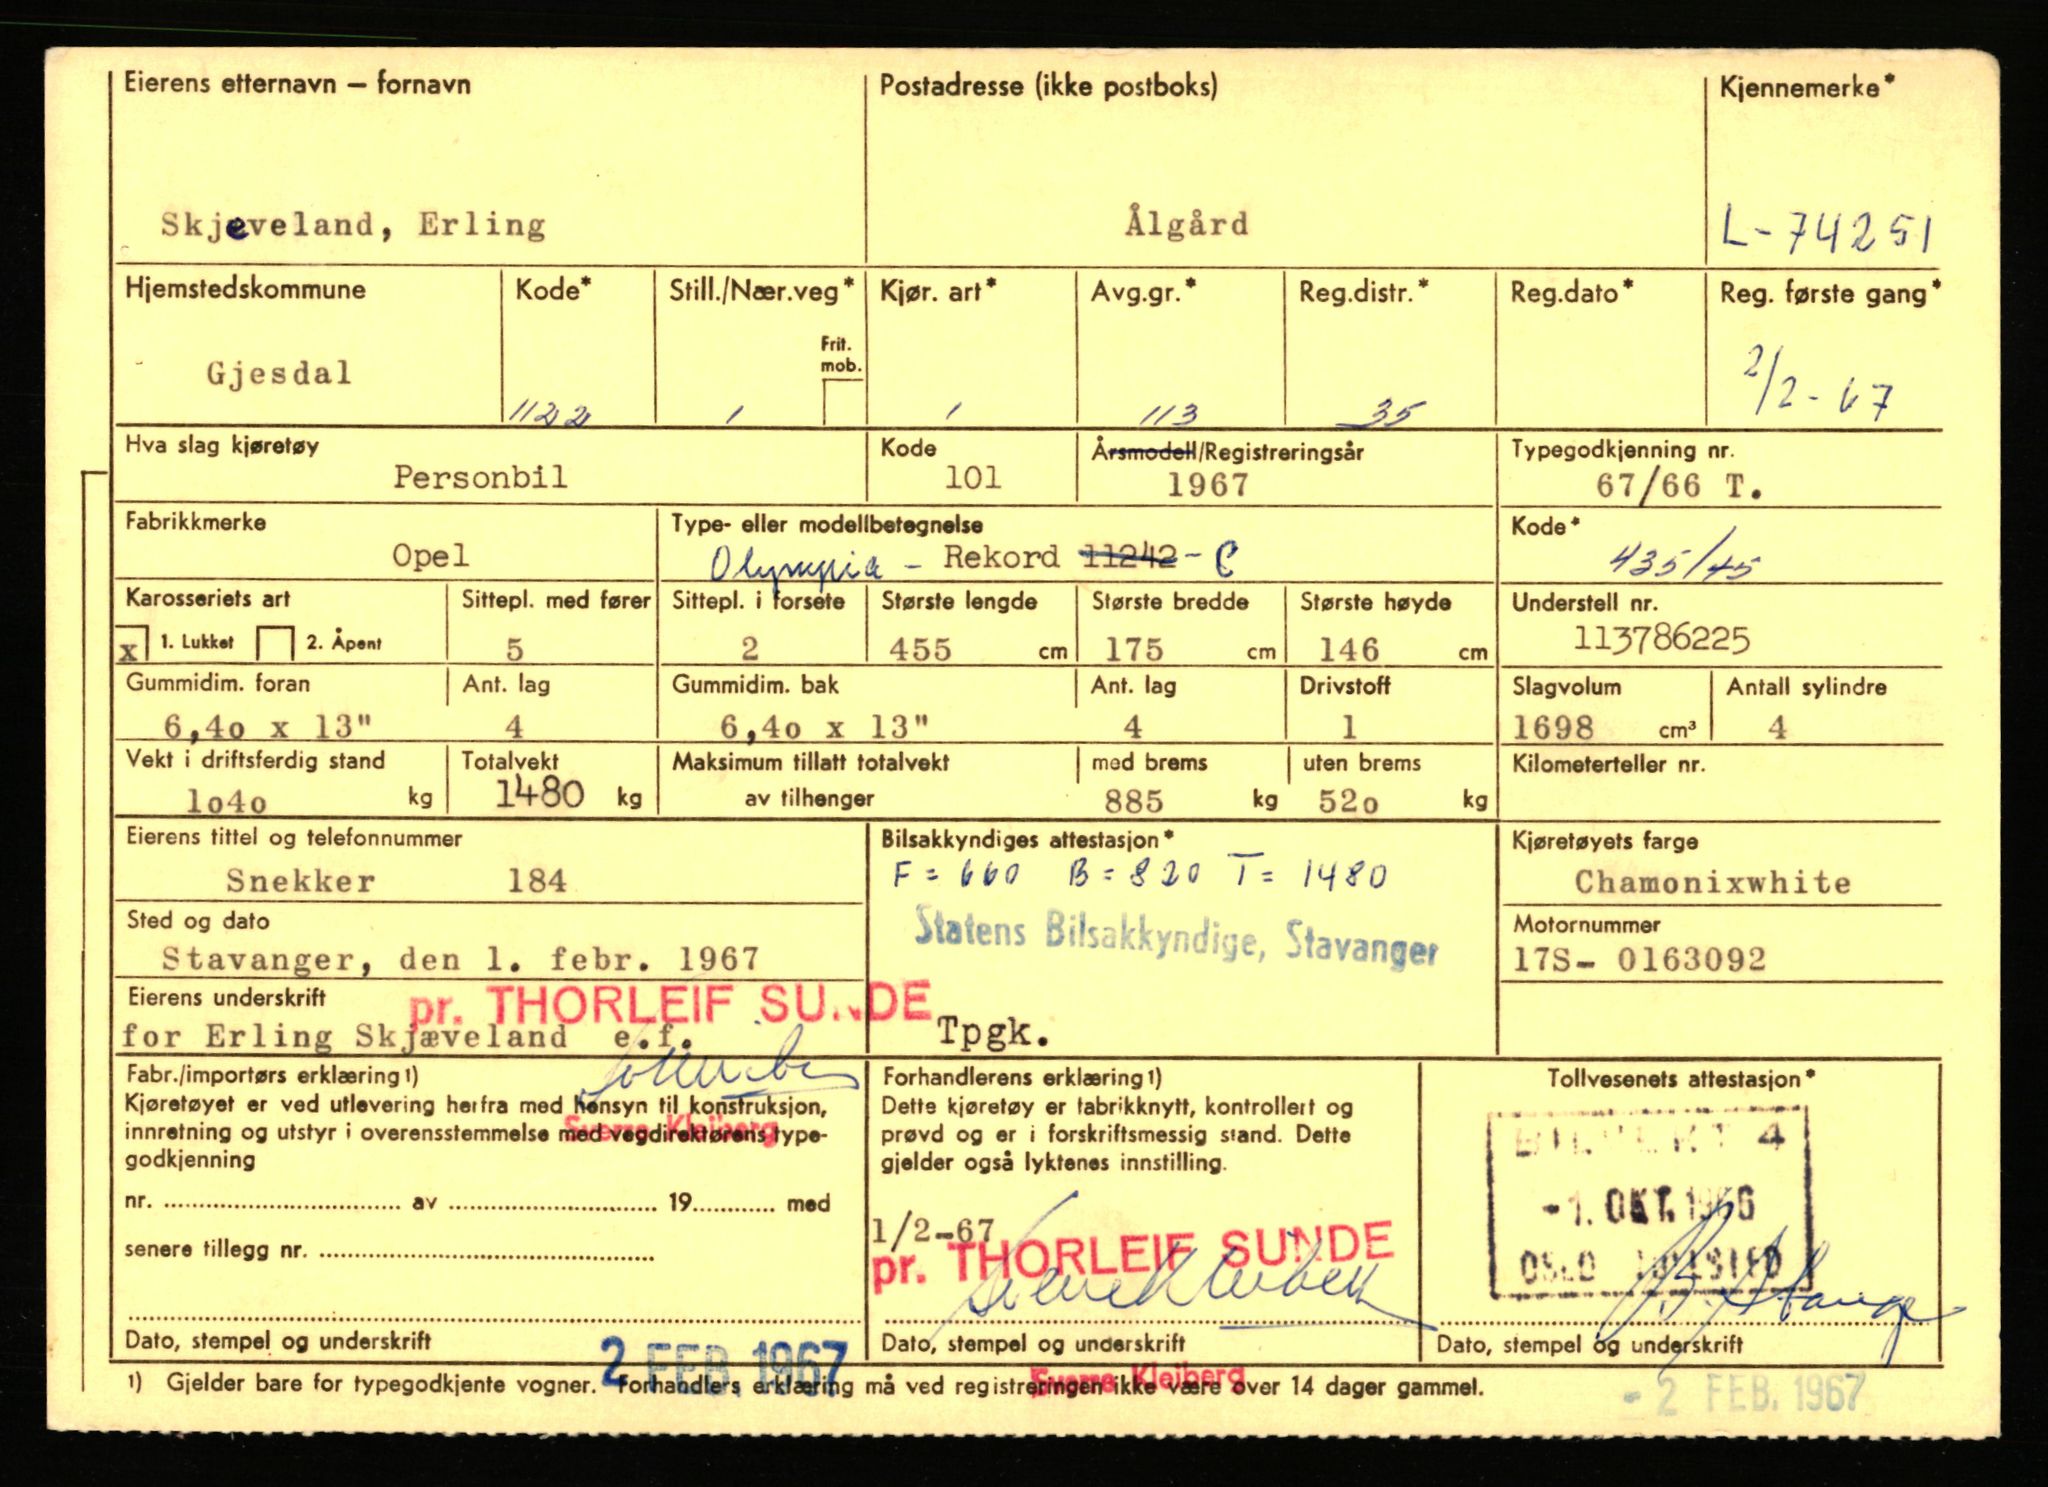 Eierens etternavn – fornavn Postadresse (ikke postboks) Kjennemerke*
Skjeveland, Erling Ålgård L-74251
Hjemstedskommune Kode* Still./Nær.veg* Kjør. art* Avg.gr.* Reg.distr.* Reg.dato* Reg. første gang*
Frit. mob.
Gjesdal 1122 1 1 113 35 2/2-67
Hva slag kjøretøy Kode Årsmodell/Registreringsår Typegodkjenning nr.
Personbil 101 1967 67/66 T.
Fabrikkmerke Type- eller modellbetegnelse Kode*
Opel Olympia - Rekord 11242 - C 435/45
Karosseriets art Sittepl. med fører Sittepl. i forsete Største lengde Største bredde Største høyde Understell nr.
x 1. Lukket 2. Åpent 5 2 455 cm 175 cm 146 cm 113786225
Gummidim. foran Ant. lag Gummidim. bak Ant. lag Drivstoff Slagvolum Antall sylindre
6,4o x 13" 4 6,4o x 13" 4 1 1698 cm³ 4
Vekt i driftsferdig stand Totalvekt Maksimum tillatt totalvekt med brems uten brems Kilometerteller nr.
1o4o kg 1480 kg av tilhenger 885 kg 52o kg
Eierens tittel og telefonnummer Bilsakkyndiges attestasjon* Kjøretøyets farge
Snekker 184 F = 660 B = 820 T = 1480 Chamonixwhite
Sted og dato Statens Bilsakkyndige, Stavanger Motornummer
Stavanger, den 1. febr. 1967 17S- 0163092
Eierens underskrift pr. THORLEIF SUNDE
for Erling Skjæveland e.f. Tpgk.
Fabr./importørs erklæring1) Forhandlerens erklæring1) Tollvesenets attestasjon*
Kjøretøyet er ved utlevering herfra med hensyn til konstruksjon, Dette kjøretøy er fabrikknytt, kontrollert og
Sverre Kleiberg
innretning og utstyr i overensstemmelse med vegdirektørens type- prøvd og er i forskriftsmessig stand. Dette 4
godkjenning gjelder også lyktenes innstilling.
nr. av 19 med -1. OKT. 1966
1/2-67
senere tillegg nr. pr. THORLEIF SUNDE OSLO TOLLSTED
Dato, stempel og underskrift Dato, stempel og underskrift Dato, stempel og underskrift
2 FEB. 1967 Sverre Kleiberg
1) Gjelder bare for typegodkjente vogner. Forhandlers erklæring må ved registreringen ikke være over 14 dager gammel.
- 2 FEB. 1967